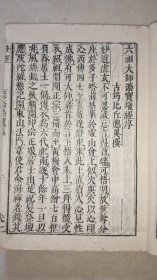 六祖大師法寶壇經序
古筠比丘德異撰
妙道虛玄不可思議忘言得旨端可悟明故世尊分
座於多子塔前拈華於靈山會上似火與火以心印
心西傳四七至菩提達磨東來此土直指人心見性
成佛有可大師者首於言下悟入末上三拜得髓受
衣紹祖開闡正宗三傳而至黃梅會中高僧七百惟
負舂居士一偈傳衣為六代祖南遯十餘年一旦以
非風旛動之機觸開印宗正眼居士由是祝髮登壇
應跋陀羅懸記開東山法門韋使君命海禪者錄其